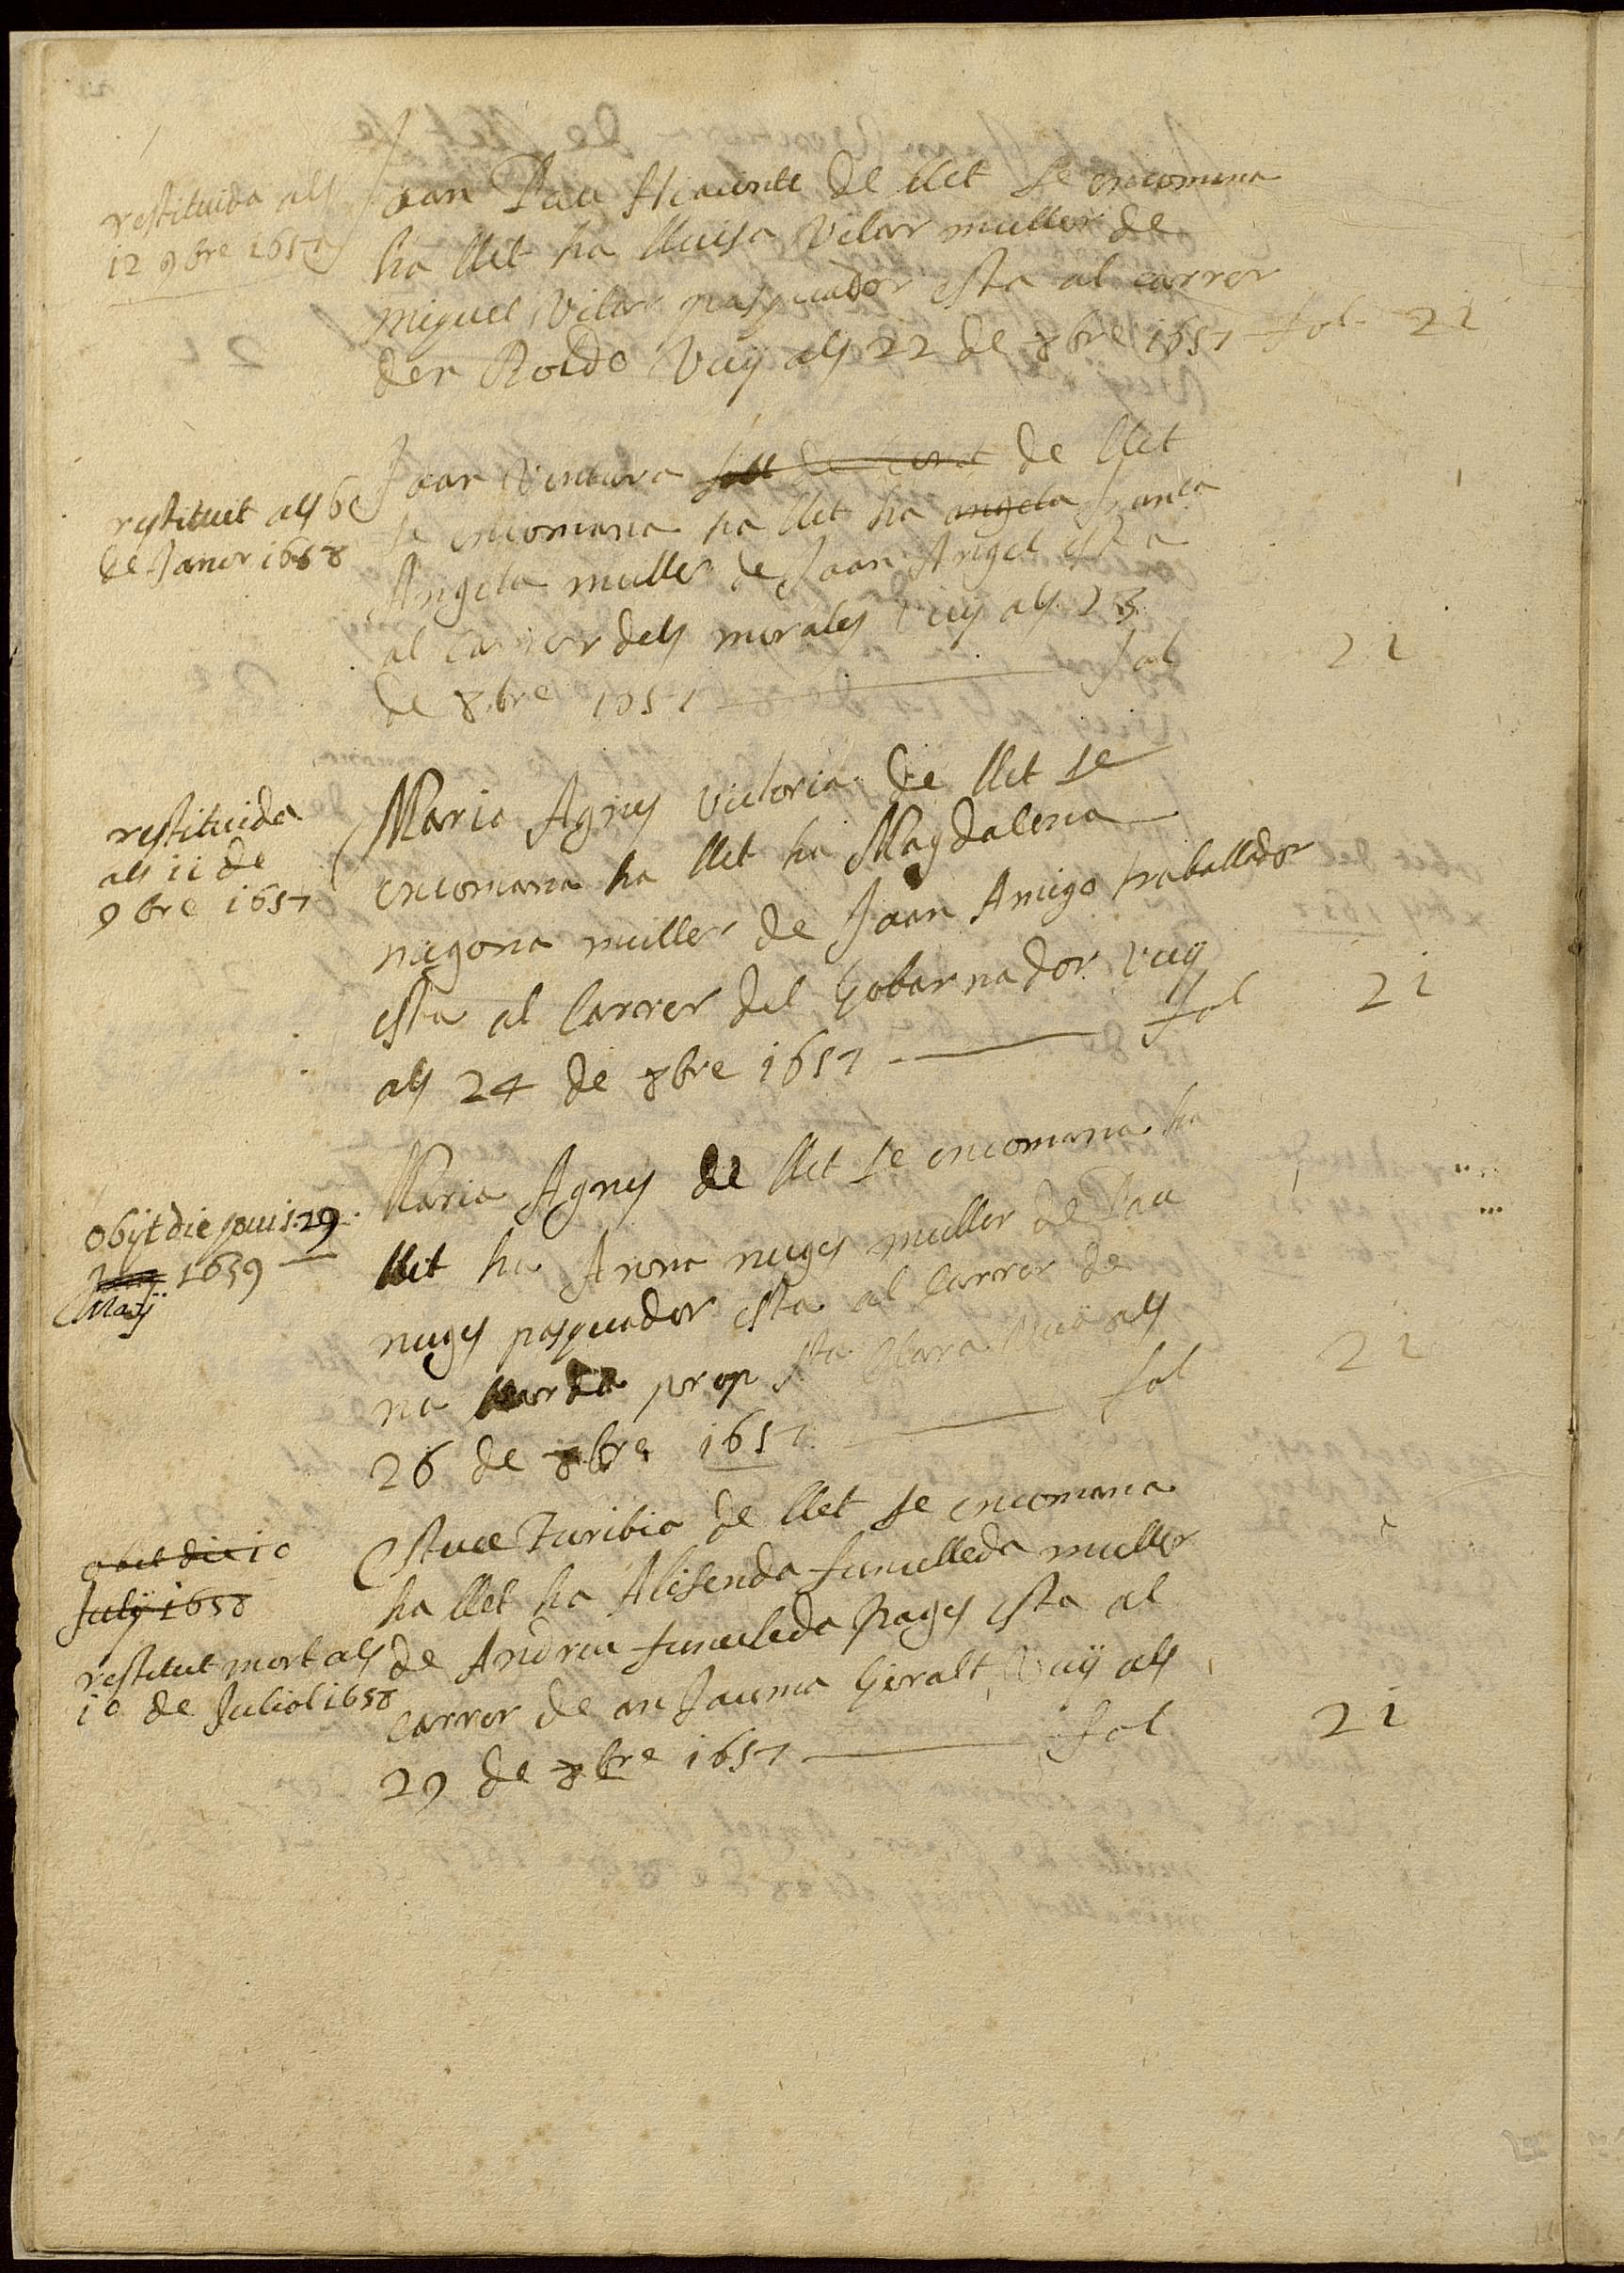 restituida als
12 9bre 1657
Joan Pau Hiacinte de llet se encomana
ha llet ha lluisa Vilar muller de
Miquel Vilar pasquador esta al carrer
den Roldo Vuÿ als 22 de 8bre 1657 fol 21
restituit als 6
de Janer 1658
Joan Ventura de llet
se encomana ha llet ha angela
Angela muller de Joan Angel esta
al carrer dels morales Vuÿ als 25
de 8bre 1657 fol 21
restituida
als 11 de
9bre 1657
Maria Agnes Victoria de llet se
encomana ha llet ha Magdalena
nugona muller de Joan Amigo traballador
esta al Carrer del Gobarnador Vuÿ
als 24 de 8bre 1657 fol 21
obijt die jouis 29
1659
Maÿ
Maria Agnes de llet se encomana ha
llet ha Anna nuges muller de Pau
nuges pasquador esta al Carrer de
na prop Sta Clara Vuÿ als
26 de 8bre 1657 fol 21
obit die 10
Julÿ 1658
restituit mort als
10 de Juliol 1658
Esteve Turibio de llet se encomana
ha llet ha Alisenda funulleda muller
de Andreu funulleda Pages esta al
carrer de an Jauma Giralt Vuÿ als
29 de 8bre 1657 fol 21